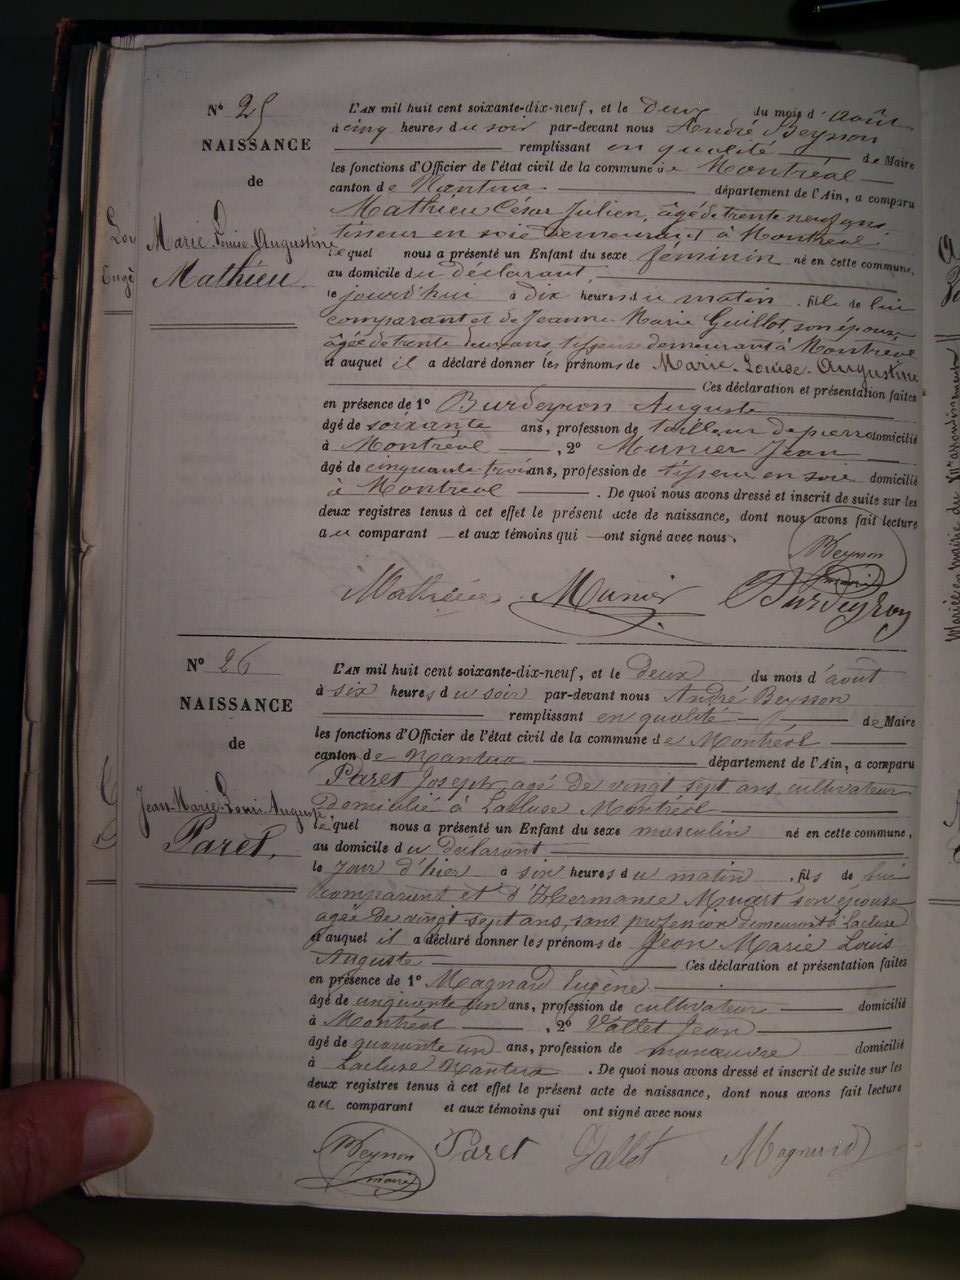 N° 25
NAISSANCE
de
Marie-Louise-Augustine
Mathieu
L'AN mil huit cent soixante-dix-neuf, et le deux du mois d'août
à cinq heures du soir par-devant nous André Beysson
remplissant en qualité de Maire
les fonctions d'Officier de l'état civil de la commune de Montréal
canton de Nantua département de l'Ain, a comparu
Mathieu César Julien, âgé de trente neuf ans,
tisseur en soie demeurant à Montréal
lequel nous a présenté un Enfant du sexe féminin né en cette commune,
au domicile du déclarant
le jourd'hui à dix heures du matin fille de lui
comparant et de Jeanne-Marie Guillot, son épouse
âgée de trente deux ans tisseuse demeurant à Montréal
et auquel il a déclaré donner les prénoms de Marie-Louise-Augustine
Ces déclaration et présentation faites
en présence de 1° Burdeyron Auguste
âgé de soixante ans, profession de tailleur de pierre domicilié
à Montréal , 2° Munier Jean
âgé de cinquante trois ans, profession de tisseur en soie domicilié
à Montréal . De quoi nous avons dressé et inscrit de suite sur les
deux registres tenus à cet effet le présent acte de naissance, dont nous avons fait lecture
au comparant et aux témoins qui ont signé avec nous.
Beysson
maire
Mathieu Munier Burdeyron
N° 26
NAISSANCE
de
Jean-Marie-Louis-Auguste
Paret,
L'AN mil huit cent soixante-dix-neuf, et le deux du mois d'août
à six heures du soir par-devant nous André Beysson
remplissant en qualité de Maire
les fonctions d'Officier de l'état civil de la commune de Montréal
canton de Nantua département de l'Ain, a comparu
Paret Joseph, agé de vingt sept ans, cultivateur
domicilié à Lacluse Montréal
lequel nous a présenté un Enfant du sexe masculin né en cette commune,
au domicile du déclarant
le jour d'hier à six heures du matin fils de lui
comparant et d'Hermance Muart son épouse
agée de vingt sept ans, sans profession demeurant à Lacluse
et auquel il a déclaré donner les prénoms de Jean Marie Louis
Auguste Ces déclaration et présentation faites
en présence de 1° Magnard Eugène
âgé de cinquante un ans, profession de cultivateur domicilié
à Montréal , 2° Vallet Jean
âgé de quarante un ans, profession de manœuvre domicilié
à Lacluse Nantua . De quoi nous avons dressé et inscrit de suite sur les
deux registres tenus à cet effet le présent acte de naissance, dont nous avons fait lecture
au comparant et aux témoins qui ont signé avec nous
Beysson
maire
Paret Vallet Magnard